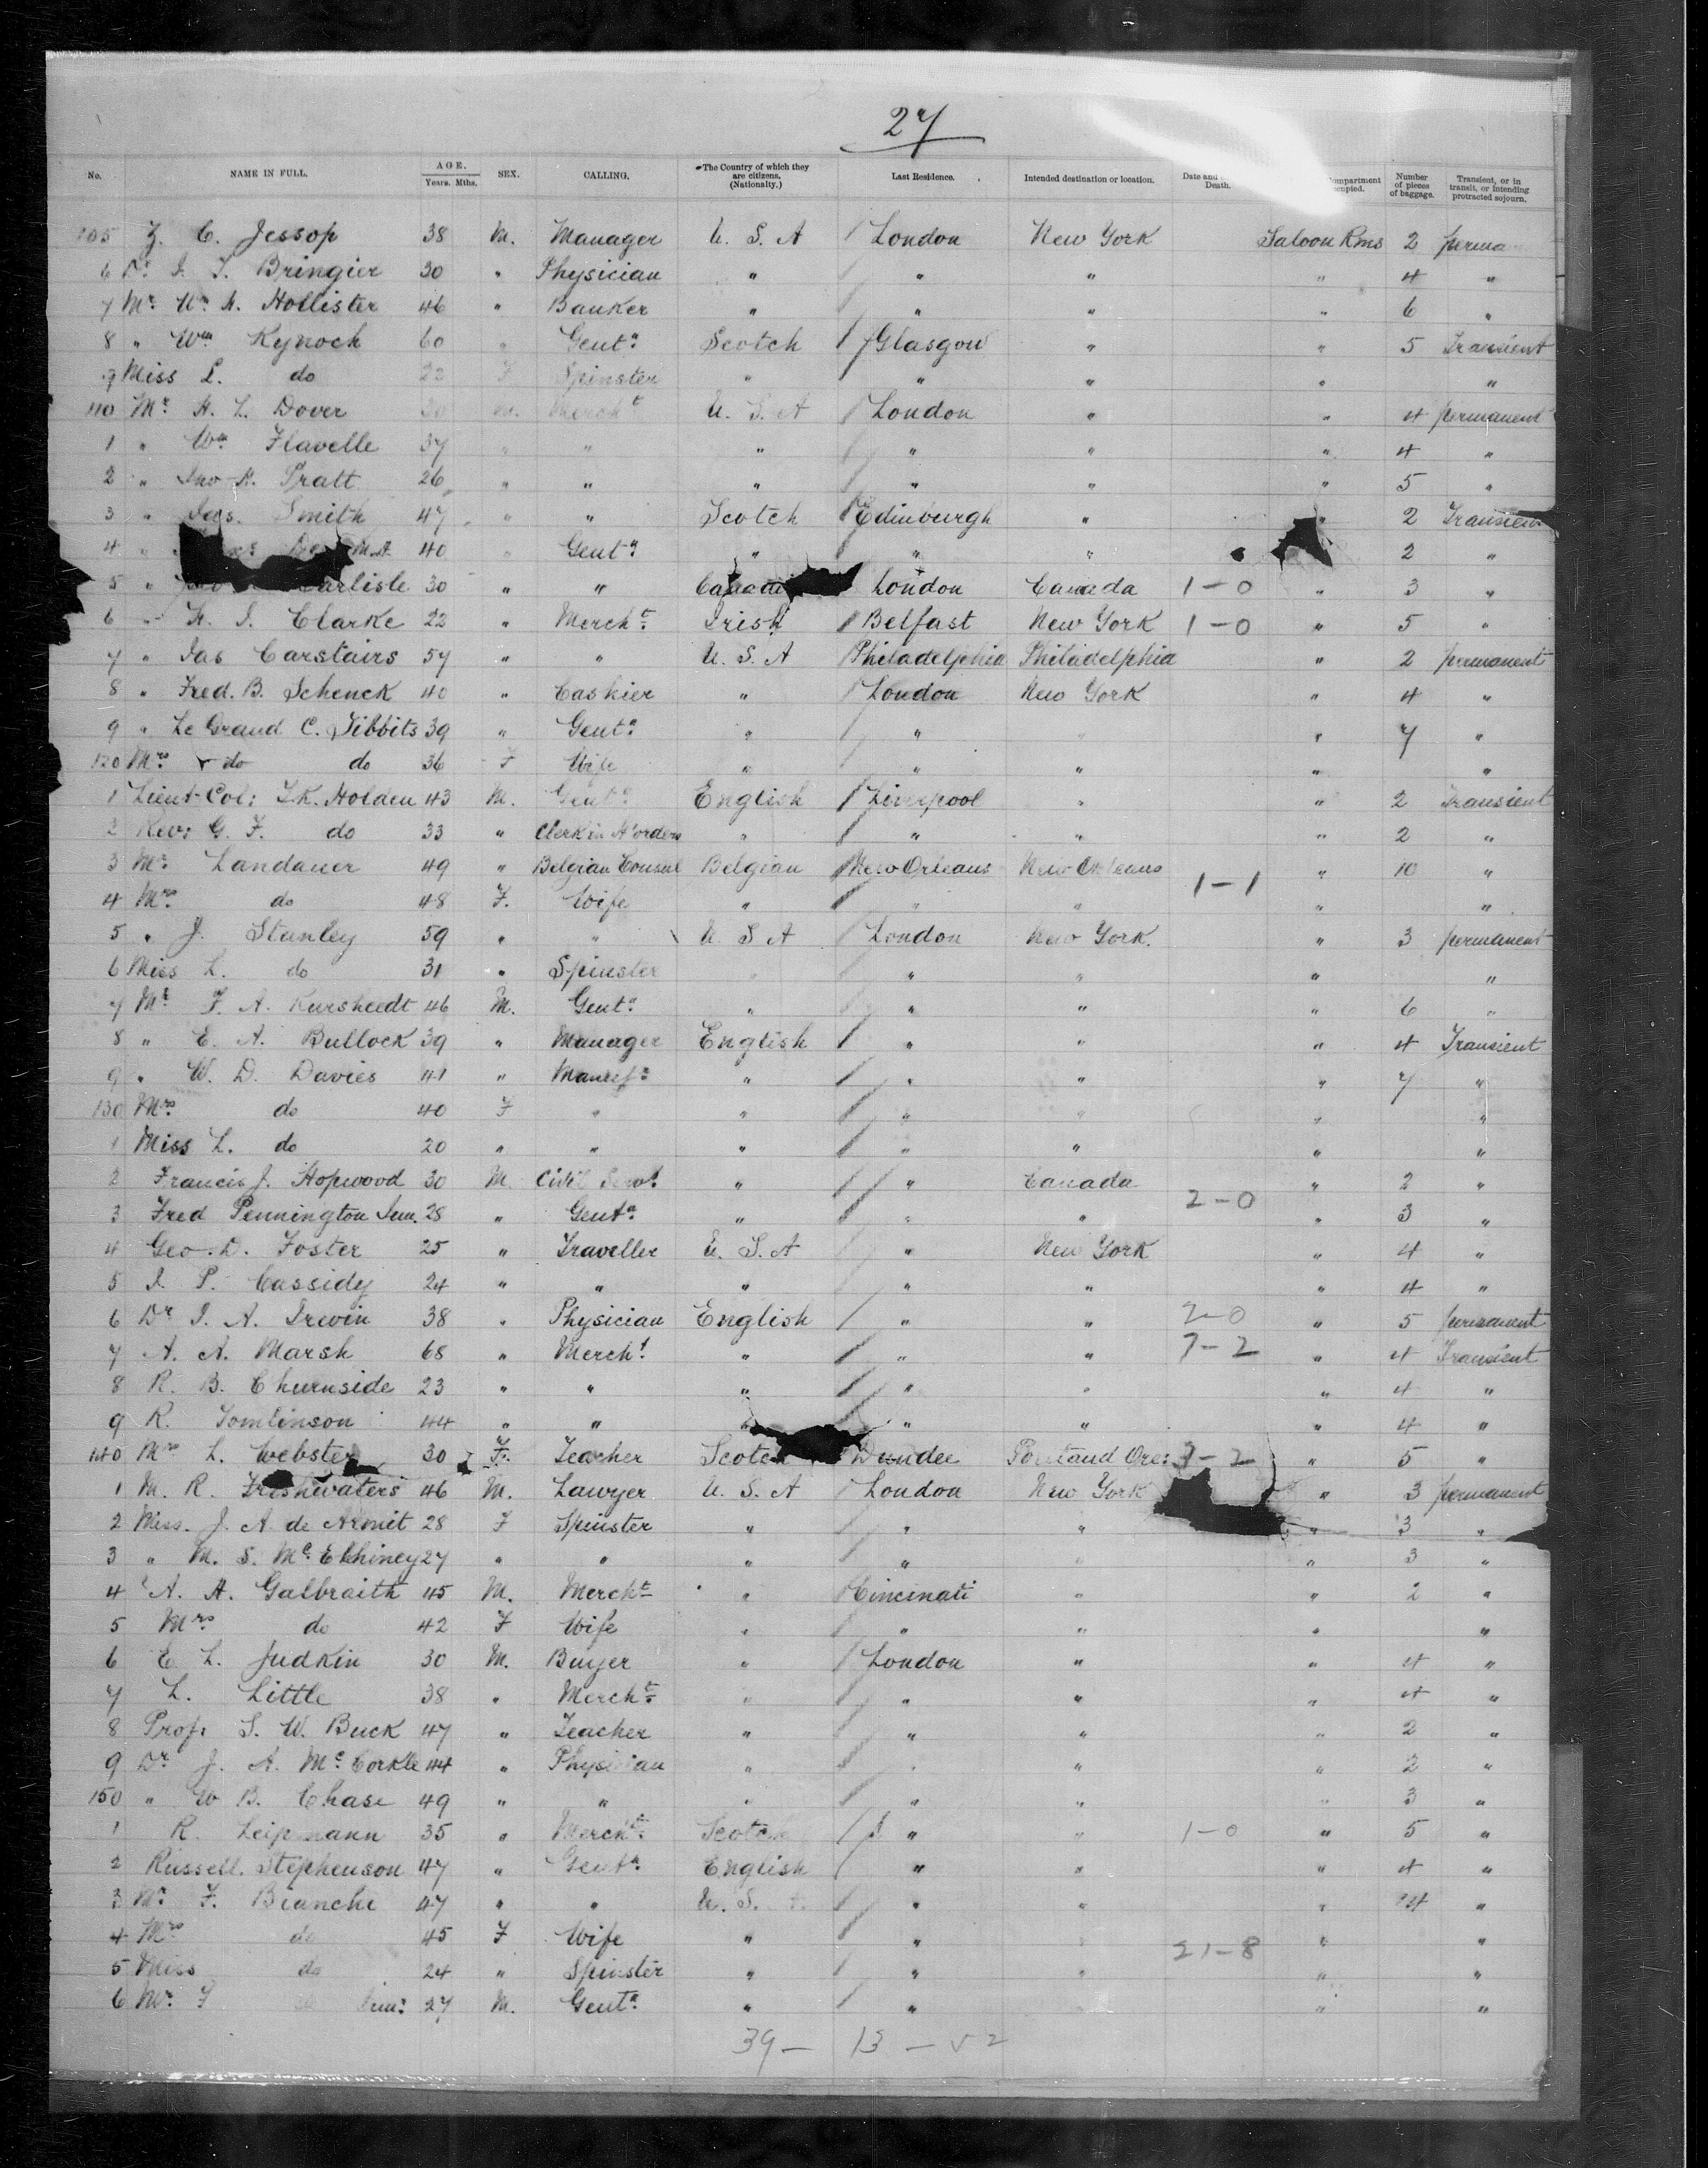 27
No. NAME IN FULL. AGE. Years. Mths. SEX. CALLING. The Country of which they are citizens. (Nationality.) Last Residence. Intended destination or location. Date and Death. Compartment occupied. Number of pieces of baggage. Transient, or in transit, or intending protracted sojourn.
105 Z. C. Jessop 38 M. Manager U. S. A London New York Saloon Rms 2 perma
6 Dr. J. T. Bringier 30 " Physician " " " " 4 "
7 Mr. Wm. H. Hollister 46 " Banker " " " " 6 "
8 " Wm Kynoch 60 " Gentn Scotch Glasgow " " 5 Transient
9 Miss L. do 22 F Spinster " " " " "
110 Mr. H. L. Dover M. Mercht U. S. A London " " 4 permanent
1 " Wm Flavelle 37 " " " " " " 4 "
2 " Jno R. Pratt 26 " " " " " " 5 "
3 " Jas. Smith 47 " " Scotch Edinburgh " " 2 Transien
4 " M.A. 40 " Gentn " " " 2 "
5 " Carlisle 30 " " London Canada 1-0 " 3 "
6 " H. J. Clarke 22 " Mercht Irish Belfast New York 1-0 " 5 "
7 " Jas Carstairs 57 " " U. S. A Philadelphia Philadelphia " 2 permanent
8 " Fred. B. Schenck 40 " Cashier " London New York " 4 "
9 " Le Grand C. Tibbits 39 " Gentn " " " " 7 "
120 Mrs do do 36 F Wife " " " " "
1 Lieut-Col: T.K. Holden 43 M. Gentn English Liverpool " " 2 Transient
2 Rev: G. F. do 33 " Clerk in H'orders " " " " 2 "
3 Mr. Landauer 49 " Belgian Consul Belgian New Orleans New Orleans " 10 "
4 Mrs do 48 F. Wife " " " 1-1 " "
5 " J. Stanley 59 " " U. S. A London New York. " 3 permanent
6 Miss L. do 31 " Spinster " " " " "
7 Mr F. A. Kursheedt 46 M. Gentn " " " " 6 "
8 " E. A. Bullock 39 " Manager English " " " 4 Transient
9 " W. D. Davies 41 " Manufr " " " " 7 "
130 Mrs do 40 F " " " " " "
1 Miss L. do 20 " " " " " " "
2 Francis J. Hopwood 30 M. Civil Servt " " Canada " 2 "
3 Fred Pennington Jun. 28 " Gentn " " " 2-0 " 3 "
4 Geo. D. Foster 25 " Traveller U. S. A " New York " 4 "
5 J. P. Cassidy 24 " " " " " " 4 "
6 Dr J. A. Irwin 38 " Physician English " " 2-0 " 5 permanent
7 A. A. Marsh 68 " Mercht " " " 7-2 " 4 Transient
8 R. B. Churnside 23 " " " " " " 4 "
9 R. Tomlinson 44 " " " " " " 4 "
140 Mrs L. Webster 30 F. Teacher Scotch Dundee Portland Ore: 3-2 " 5 "
1 M. R. Freshwaters 46 M. Lawyer U. S. A London New York " 3 permanent
2 Miss. J. A. de Armit 28 F Spinster " " " " 3 "
3 " M. S. McElhiney 27 " " " " " " 3 "
4 A. H. Galbraith 45 M. Mercht " Cincinati " " 2 "
5 Mrs do 42 F Wife " " " " "
6 E. L. Judkin 30 M. Buyer " London " " 4 "
7 L. Little 38 " Mercht " " " " 4 "
8 Prof: S. W. Buck 47 " Teacher " " " " 2 "
9 Dr J. A. McCorkle 44 " Physician " " " " 2 "
150 " W B. Chase 49 " " " " " " 3 "
1 R. Leipmann 35 " Mercht Scotch " " 1-0 " 5 "
2 Russell. Stephenson 47 " Gentn English " " " 4 "
3 Mr F. Bianchi 47 " " U. S. " " " 14 "
4 Mrs do 45 F Wife " " " 21-8 " "
5 Miss do 24 " Spinster " " " " "
6 Mr. F Jun: 27 M. Gentn " " " "
39 — 13 — 52